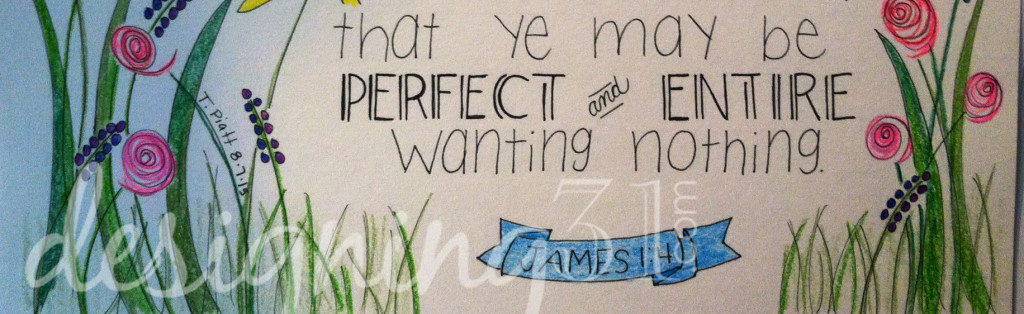 that ye may be
PERFECT and ENTIRE
wanting nothing.
T. Piatt 8.7.15
JAMES 1:4
designing31.com